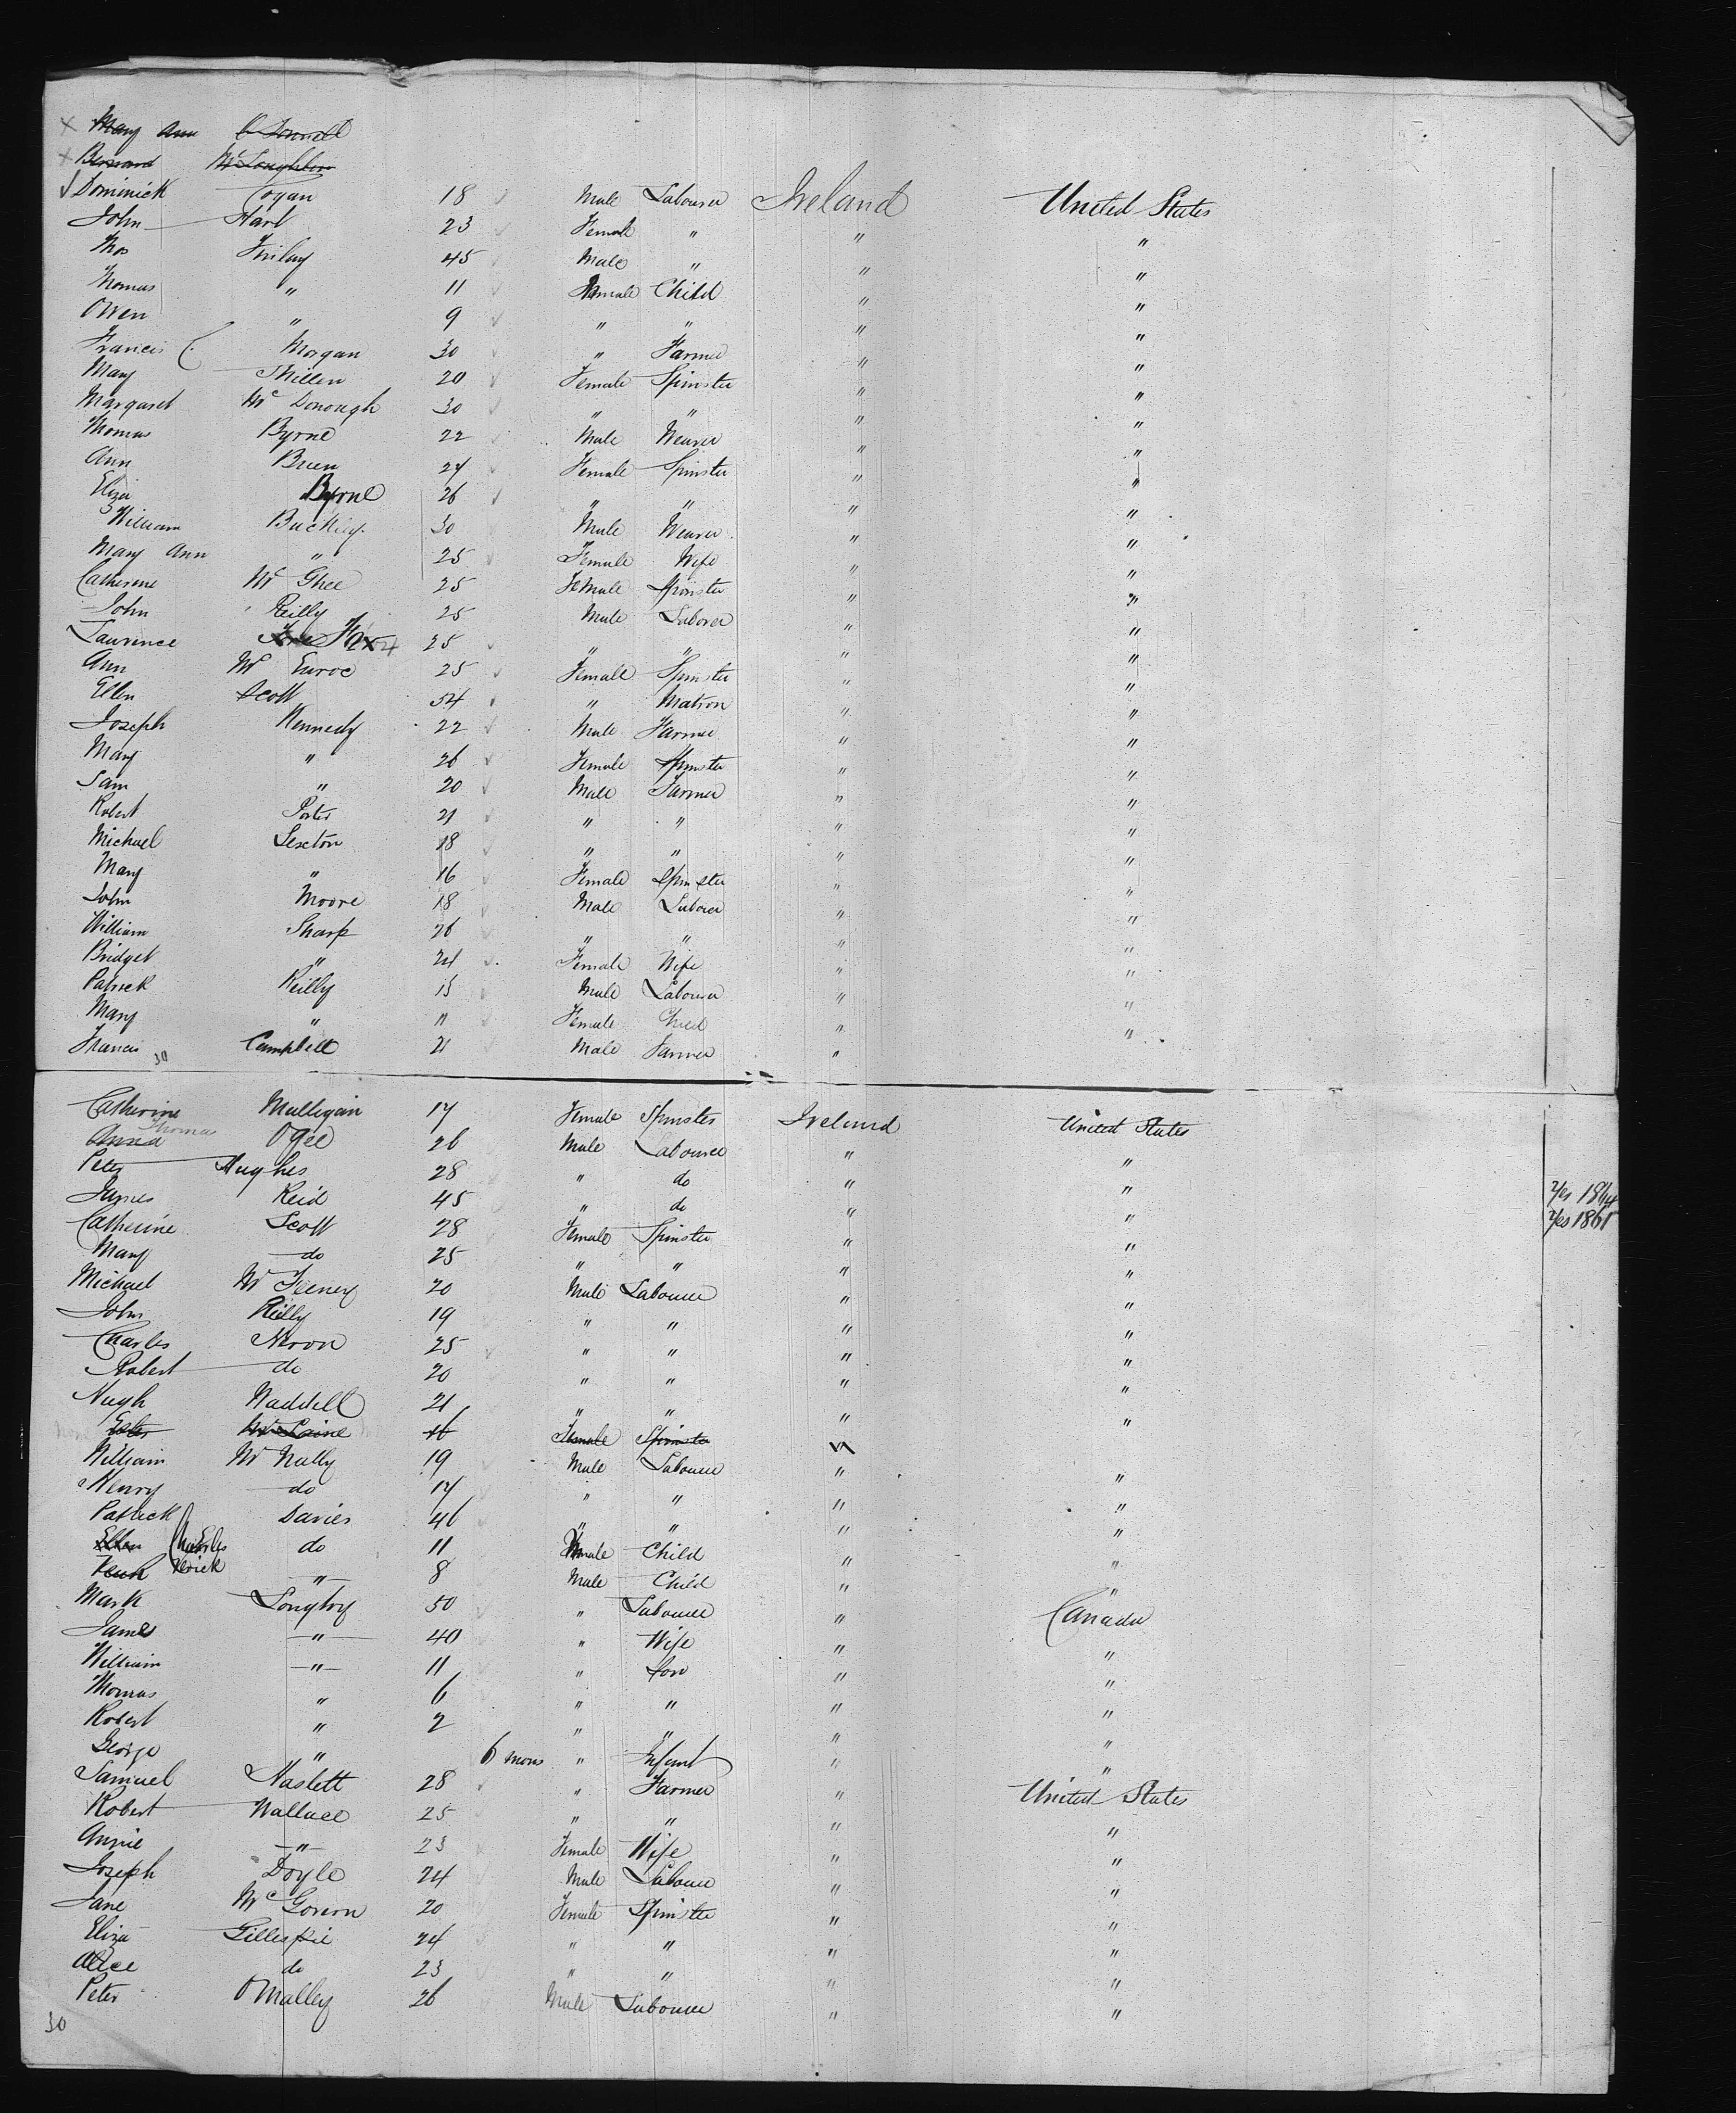 x Mary Ann O'Donnell
x Bernard McLoughlin
Dominick Cogan 18 Male Labourer Ireland United States
John Hart 23 Female " " "
Thos Finlay 45 Male " " "
Thomas " 11 Male Child " "
Owen " 9 " " " "
Francis C. Morgan 30 " Farmer " "
Mary 20 Female Spinster " "
Margaret Mc Donough 30 " " " "
Thomas Byrne 22 Male Weaver " "
Ann Brien 24 Female Spinster " "
Eliza Byrne 26 " " " "
William Buckley 30 Male Weaver " "
Mary Ann " 25 Female Wife " "
Catherine Mc Ghee 25 Female Spinster " "
John Reilly 25 Male Laborer " "
Laurence Fox 25 " " " "
Ann Mc Enroe 25 Female Spinster " "
Ellen Scott 54 " Matron " "
Joseph Kennedy 22 Male Farmer " "
Mary " 26 Female Spinster " "
Sam " 20 Male Farmer " "
Robert Porter 21 " " " "
Michael Sexton 18 " " " "
Mary " 16 Female Spinster " "
John Moore 18 Male Laborer " "
William Sharp 26 " " " "
Bridget " 24 Female Wife " "
Patrick Reilly 13 Male Labourer " "
Mary " 11 Female Child " "
Francis Campbell 21 Male Farmer " "
30
Catherine Mulligan 17 Female Spinster Ireland United States
Anna Thomas Ogle 26 Male Labourer " "
Peter Hughes 28 " do " "
James Reid 45 " do " " Yes 1864
Catherine Scott 28 Female Spinster " " Yes 1861
Mary do 25 " " " "
Michael Mc Feeney 20 Male Labourer " "
John Reilly 19 " " " "
Charles Neron 25 " " " "
Robert do 20 " " " "
Hugh Waddell 21 " " " "
16 Female Spinster "
William Mc Nally 19 Male Labourer " "
Henry do 17 " " " "
Patrick Davies 46 " " " "
Ellen Charles do 11 Male Child " "
" 8 Male Child " "
Mark Longtry 50 " Labourer " Canada
James " 40 " Wife " "
William " 11 " Son " "
Thomas " 6 " " " "
Robert " 2 " " " "
George " 6 mons " Infant " "
Samuel Haslett 28 " Farmer " United States
Robert Wallace 25 " " " "
Annie " 23 Female Wife " "
Joseph Doyle 24 Male Labourer " "
Jane Mc Govern 20 Female Spinster " "
Eliza Gillespie 24 " " " "
Alice do 23 " " " "
Peter O'Malley 26 Male Labourer " "
30